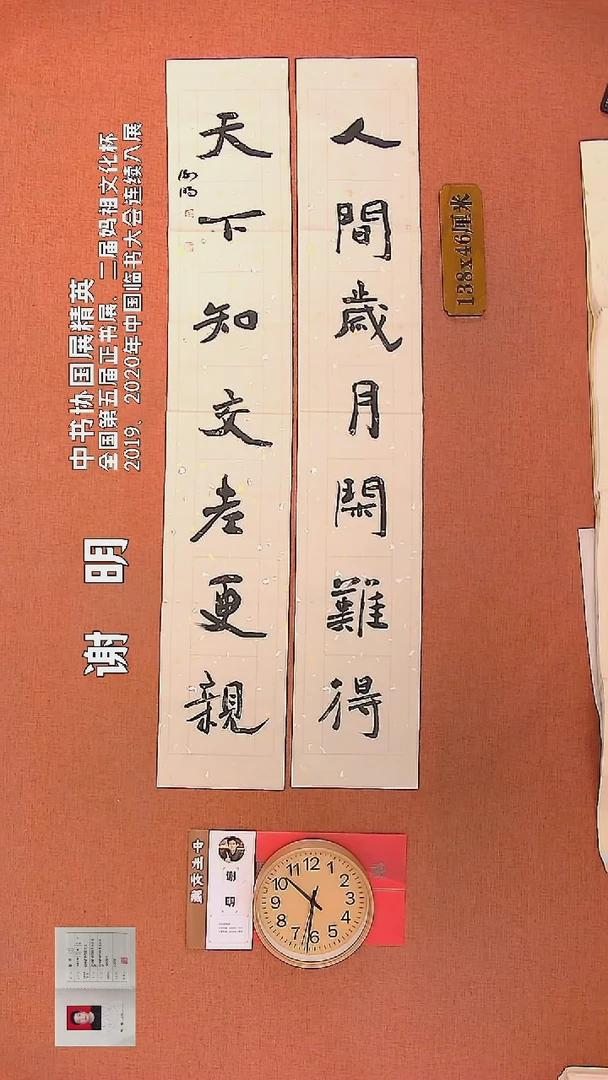 人間歲月閑難得
天下知交老更親
中书协国展精英
全国第五届正书展、二届妈祖文化杯
2019、2020年中国临书大会连续入展
谢 明
138x46厘米
谢 明
12
1
2
3
4
5
6
7
8
9
10
11